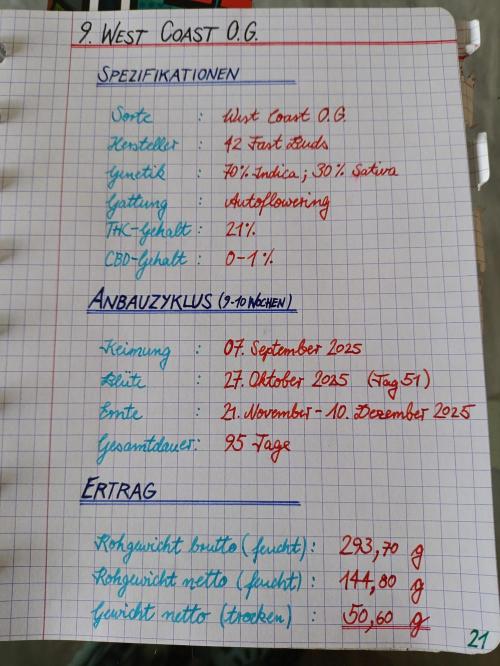 9. WEST COAST O.G.
SPEZIFIKATIONEN
Sorte : West Coast O.G.
Hersteller : 42 Fast Buds
Genetik : 70% Indica ; 30% Sativa
Gattung : Autoflowering
THC-Gehalt : 21%
CBD-Gehalt : 0-1%
ANBAUZYKLUS (9-10 WOCHEN)
Keimung : 07. September 2025
Blüte : 27. Oktober 2025 (Tag 51)
Ernte : 21. November - 10. Dezember 2025
Gesamtdauer : 95 Tage
ERTRAG
Rohgewicht brutto (feucht) : 293,70 g
Rohgewicht netto (feucht) : 144,80 g
Gewicht netto (trocken) : 50,60 g
21